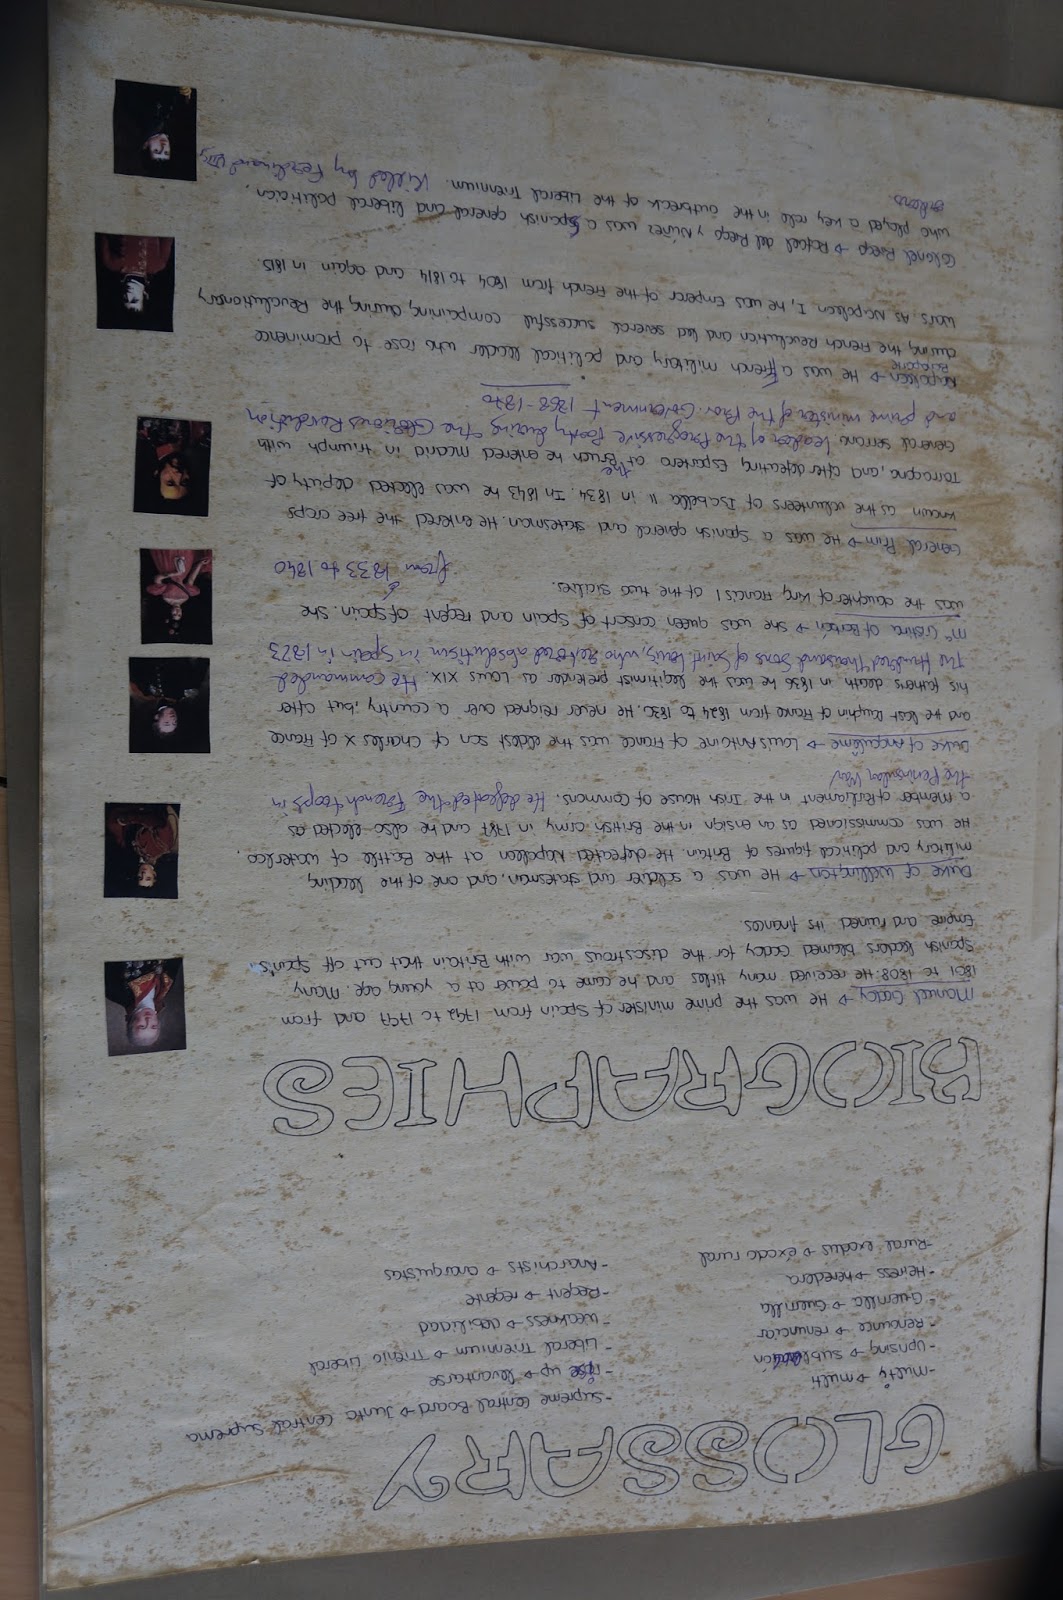 GLOSSARY
- Multy → multi
- Uprising → sublevación
- Renounce → renunciar
- Guerrilla → Guerrilla
- Heiress → heredera
- Rural exodus → éxodo rural
- Supreme Central Board → Junta Central Suprema
- rise up → levantarse
- Liberal Triennium → Trienio Liberal
- Weakness → debilidad
- Regent → regente
- Anarchists → anarquistas
BIOGRAPHIES
Manuel Godoy → He was the prime minister of Spain from 1792 to 1797 and from
1801 to 1808. He received many titles and he came to power at a young age. Many
Spanish leaders blamed Godoy for the disasstrous war with Britain that cut off Spain's
Empire and ruined its finances.
Duke of Wellington → He was a soldier and statesman, and one of the leading
military and political figures of Britain. He defeated Napoleon at the Battle of Waterloo.
He was commissioned as an ensign in the British army in 1787 and he also elected as
a Member of Parliament in the Irish House of Commons. He defeated the French troops in
the Peninsular War
Duke of Angoulême → Louis Antoine of France was the eldest son of Charles X of France
and the last Dauphin of France from 1824 to 1830. He never reigned over a country, but after
his fathers death in 1836 he was the legitimist pretender as Louis XIX. He commanded
The Hundred Thousand Sons of Saint Louis, who restored absolutism in Spain in 1823
Mª Cristina of Borbón → She was queen consort of Spain and regent of Spain. She
from 1833 to 1840
was the daughter of King Francis I of the two sicilies.
General Prim → He was a spanish general and statesman. He entered the free corps
known as the volunteers of Isabella II in 1834. In 1843 he was elected deputy of
Tarragona, and after defeating Espartero at the Bruch he entered Madrid in triumph with
General serrano. leader of the Progressive Party during the Glorious Revolution
and prime minister of the Prov. Government 1868-1870
Napoleon Bonaparte → He was a French military and political leader who rose to prominence
during the French Revolution and led several successful compaining during the Revolutionary
wars. As Napoleon I, he was Emperor of the French from 1804 to 1814 and again in 1815.
Colonel Riego → Rafael del Riego y Núñez was a Spanish general and liberal politician,
who played a key role in the outbreak of the Liberal Triennium. Killed by Ferdinand VII,